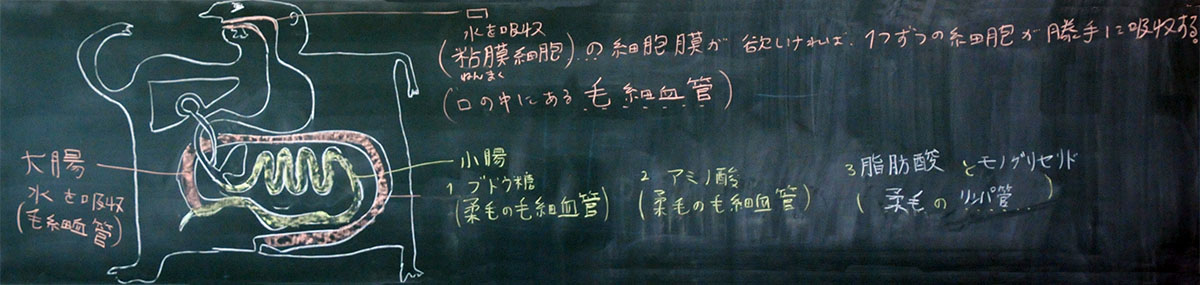 口
水を吸収
(粘膜細胞)…の細胞膜が 欲しければ、1つずつの細胞が勝手に吸収する。
ねんまく
(口の中にある毛細血管)
大腸
水を吸収
(毛細血管)
小腸
1 ブドウ糖
(柔毛の毛細血管)
2 アミノ酸
(柔毛の毛細血管)
3 脂肪酸とモノグリセリド
(柔毛のリンパ管)